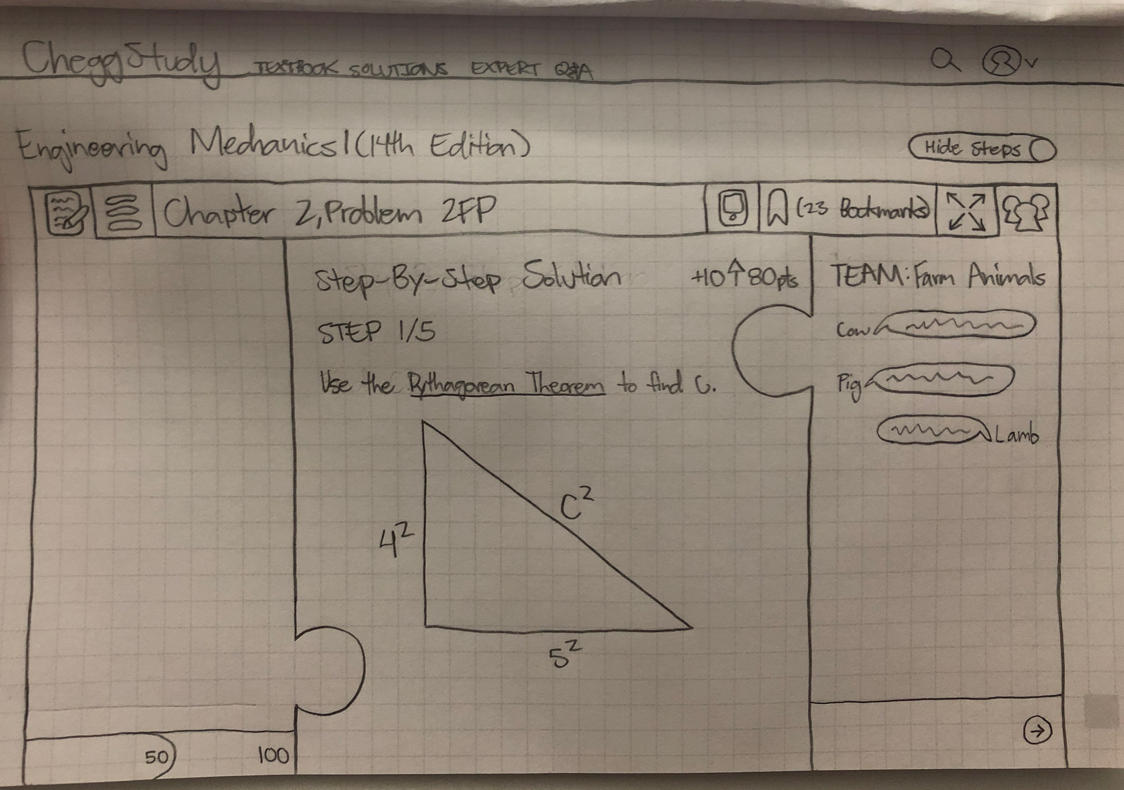 CheggStudy TEXTBOOK SOLUTIONS EXPERT Q&A
Engineering Mechanics 1 (14th Edition)
Hide Steps
Chapter 2, Problem 2FP
(23 Bookmarks)
Step-By-Step Solution
+10↑80pts
STEP 1/5
Use the Pythagorean Theorem to find C.
4²
C²
5²
TEAM: Farm Animals
Cow
Pig
Lamb
50
100